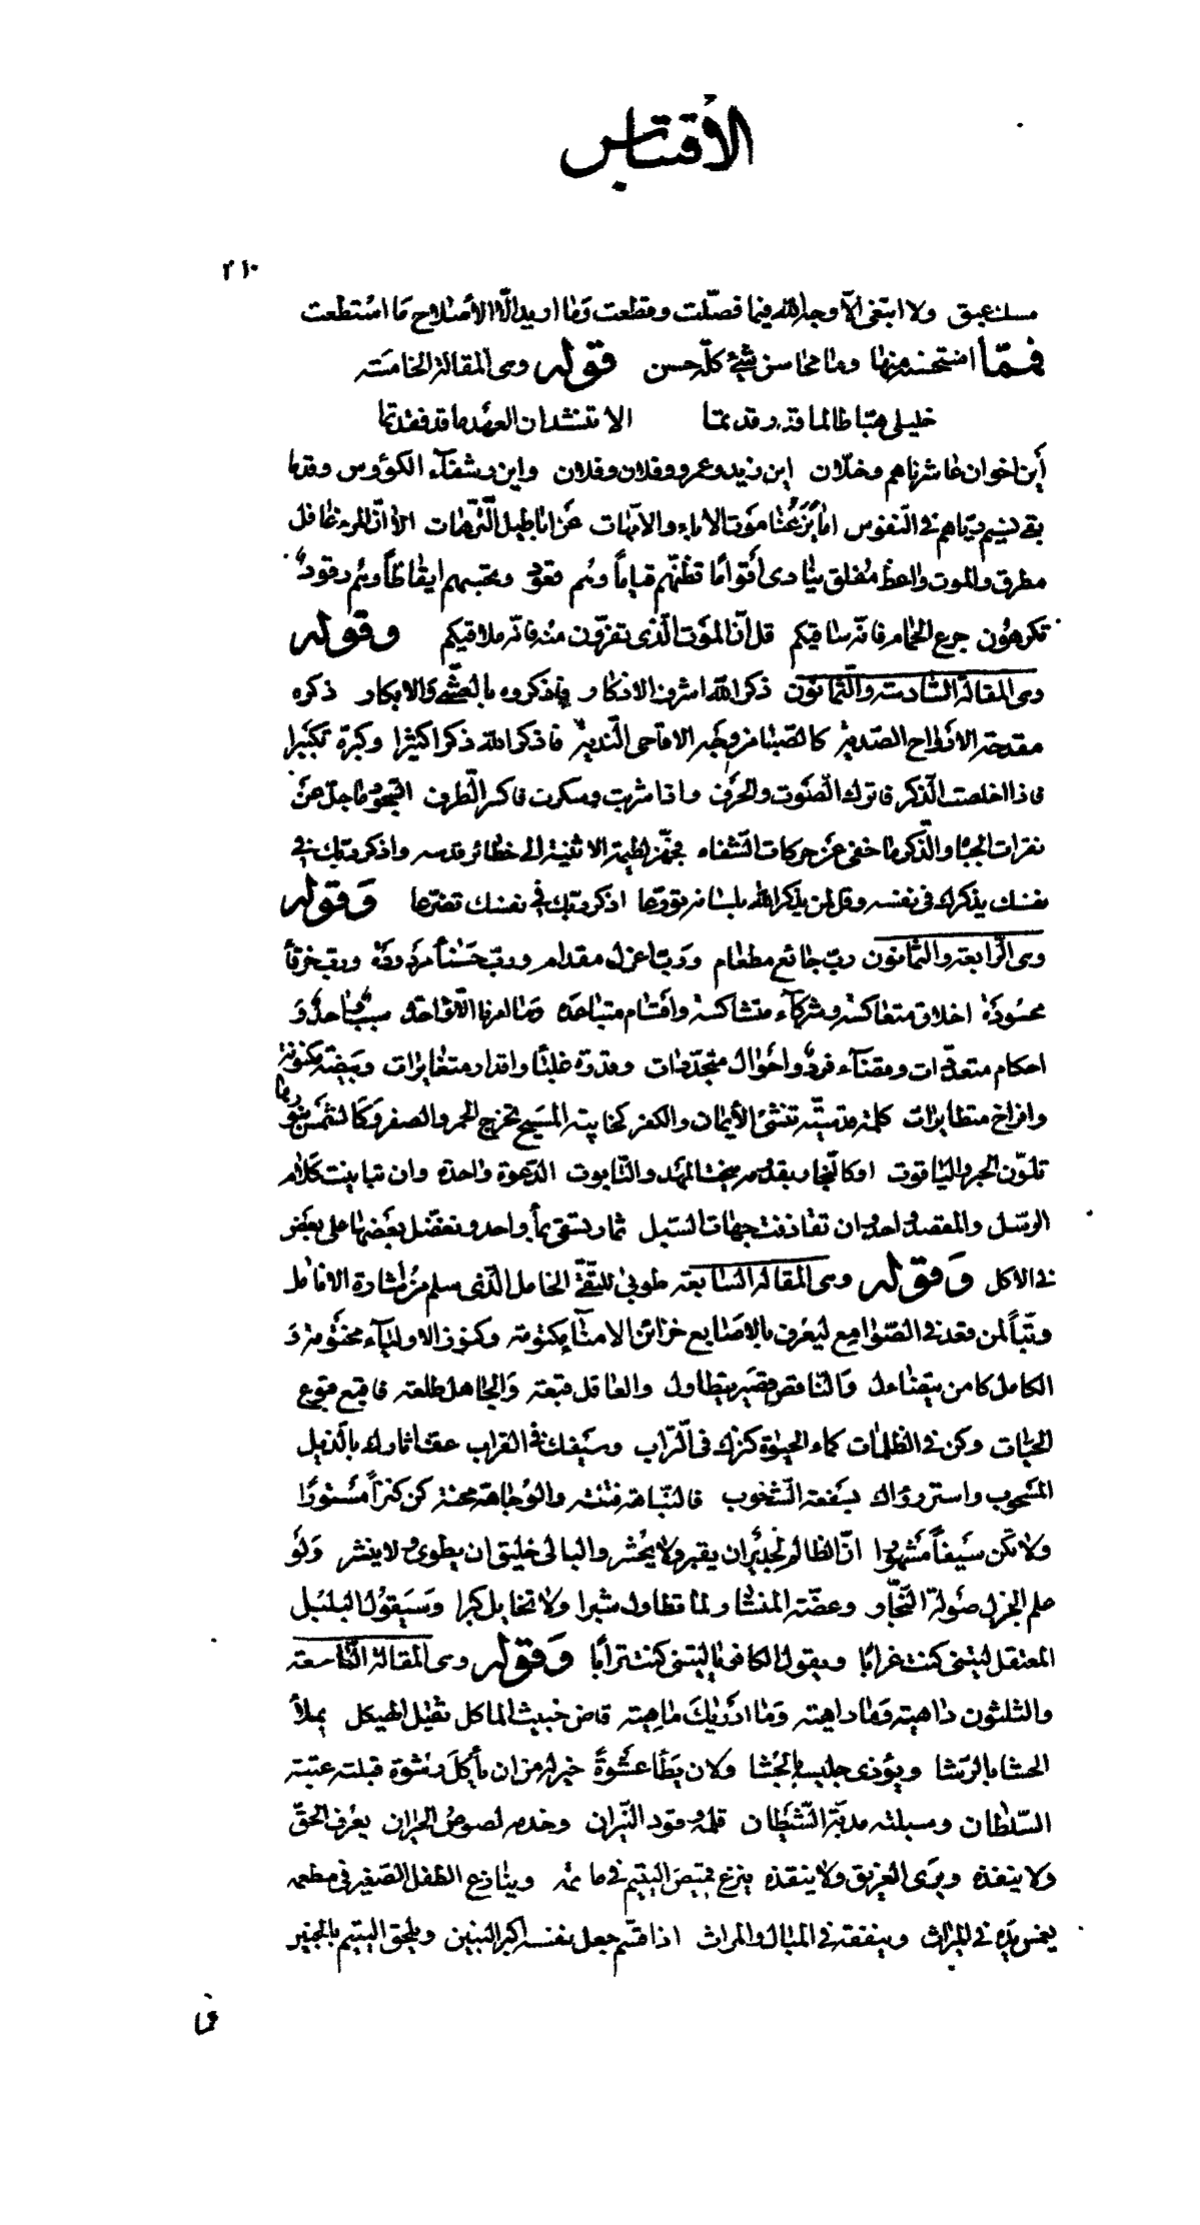 الاقتباس
٢١٠
مسك عبق ولا ابتغى الّا وجه الله فيما فصّلت وقطعت وما اريد الّا الأصلاح ما استطعت
فممّا استحسنه منها وما محاسن شئ كلّه حسن قوله وهى المقالة الخامسة
خليلى هبّا طالما قد رقدتما الا تنشدان العهد ما قد فقدتما
أين اخوان عاشرناهم وخلّان اين زيد وعمرو وفلان وفلان واين رشفآء الكؤوس وقدما
بقى نسيم ريّاهم فى النّفوس اما يزعنا موت الاباء والامّهات عن اباطيل التّرّهات الا انّ المرء غافل
مطرق والموت واعظ مفلق ينادى أقوامًا تظنّهم قياماً وهم قعود وتحسبهم ايقاظاً وهم رقود
تكرهون جرع الحمام فانّه ساقيكم قل انّ الموت الّذى تفرّون منه فانّه ملاقيكم وقوله
وهى المقالة السّادسة والثّمانون ذكر الله اشرف الاذكار فاذكروه بالعشّى والابكار ذكره
مقدحة الارواح الصّدية كالصّبا مروحة الاقاحى النّدية فاذكر الله ذكرا كثيرا وكبّره تكبيرا
فاذا اخلصت الذّكر فاترك الصّوت والحرف واذا شربت وسكرت فاكسر الظّرف النّجوى ما جلّ عن
نقرات الجباه والذّكر ما خفى عن حركات الشّفاه
نفسك يذكرك فى نفسه وقل لمن يذكر الله بلسانه اذكر ربّك فى نفسك تضرّعا وقوله
وهى الرّابعة والثمانون ربّ جائع مطعام وربّ اعزل مقدام وربّ حسناً مردودة وربّ خرقاً
محسودة اخلاق متعاكسة وشركآء متشاكسة واقسام متباعدة وما العرفا الّا واحدة سبب واحد و
احكام متعدّدات وقضآء فرد واحوال متجدّدات وقدرة غلبًا واقدار متغايرات وبيضة مكنونة
وافراخ متطايرات كلمة قدسيّة تنشئ الأيمان والكفر كخابية المسيح تخرج الحمر والصفر وكالشمس بنورها
تلوّن الحجر والياقوت او كالنّجار بقدومه ينحت المهد والتّابوت الدّعوة واحدة وان تباينت كلام
الرّسل والمقصد واحد وان تقاذفت جهات السّبل ثمار تسقى بمآ واحد ونفضّل بعضها على بعض
فى الاكل وقوله وهى المقالة السّابعة طوبى للتّقّى الخامل الّذى سلم من اشارة الانامل
وتبّاً لمن قعد فى الصّوامع ليعرف بالاصابع خزائن الامنآء مكتومة وكنوز الاولياء مختومة و
الكامل كامن يتضاءل والناقص قصير يتطاول والعاقل قبعة والجاهل طلعة فاقبع قبوع
الحيّات وكن فى الظلمات كماء الحيوة كنزك فى التّراب وسيفك فى القراب عفّ اثارك بالذيل
المسحوب واستر رواك بسفعة الشّحوب فالنّباهة فتنة والوجاهة محنة كن كنزاً مستورًا
ولا تكن سيفاً مشهورا انّ الظالم لجدير ان يقبر ولا يحشر والبالى خليق ان يطوى ولا ينشر ولو
علم الجزل صولة النّجّار وعضّة المنشار لما تطاول شبرا ولا تخايل كبرا وسيقول البلبل
المعتقل ليتنى كنت غرابًا ويقول الكافر يا ليتنى كنت ترابًا وقوله وهى المقالة التّاسعة
والثلثون داهية وما داهية وما ادريك ماهيه قاض خبيث الماكل ثقيل الهيكل يملأ
الحشا بالرّشا ويؤذى جليسه بالجشا ولان يطأ عشوةً خير له من ان يأكل رشوة قبلته عتبة
السّلطان وسبلته مدبّة الشّيطان قلمه وقود النّيران وخدمه لصوص الجيران يعرف الحقّ
ولا ينفذه ويرى الغريق ولا ينقذه ينزع قميص اليتيم فى مأتمه وينازع الطّفل الصّغير فى مطعمه
يغمس يده فى الميراث وينفقه فى المبال والمراث اذا قسّم جعل نفسه اكبر البنين ويلحق اليتيم بالجنين